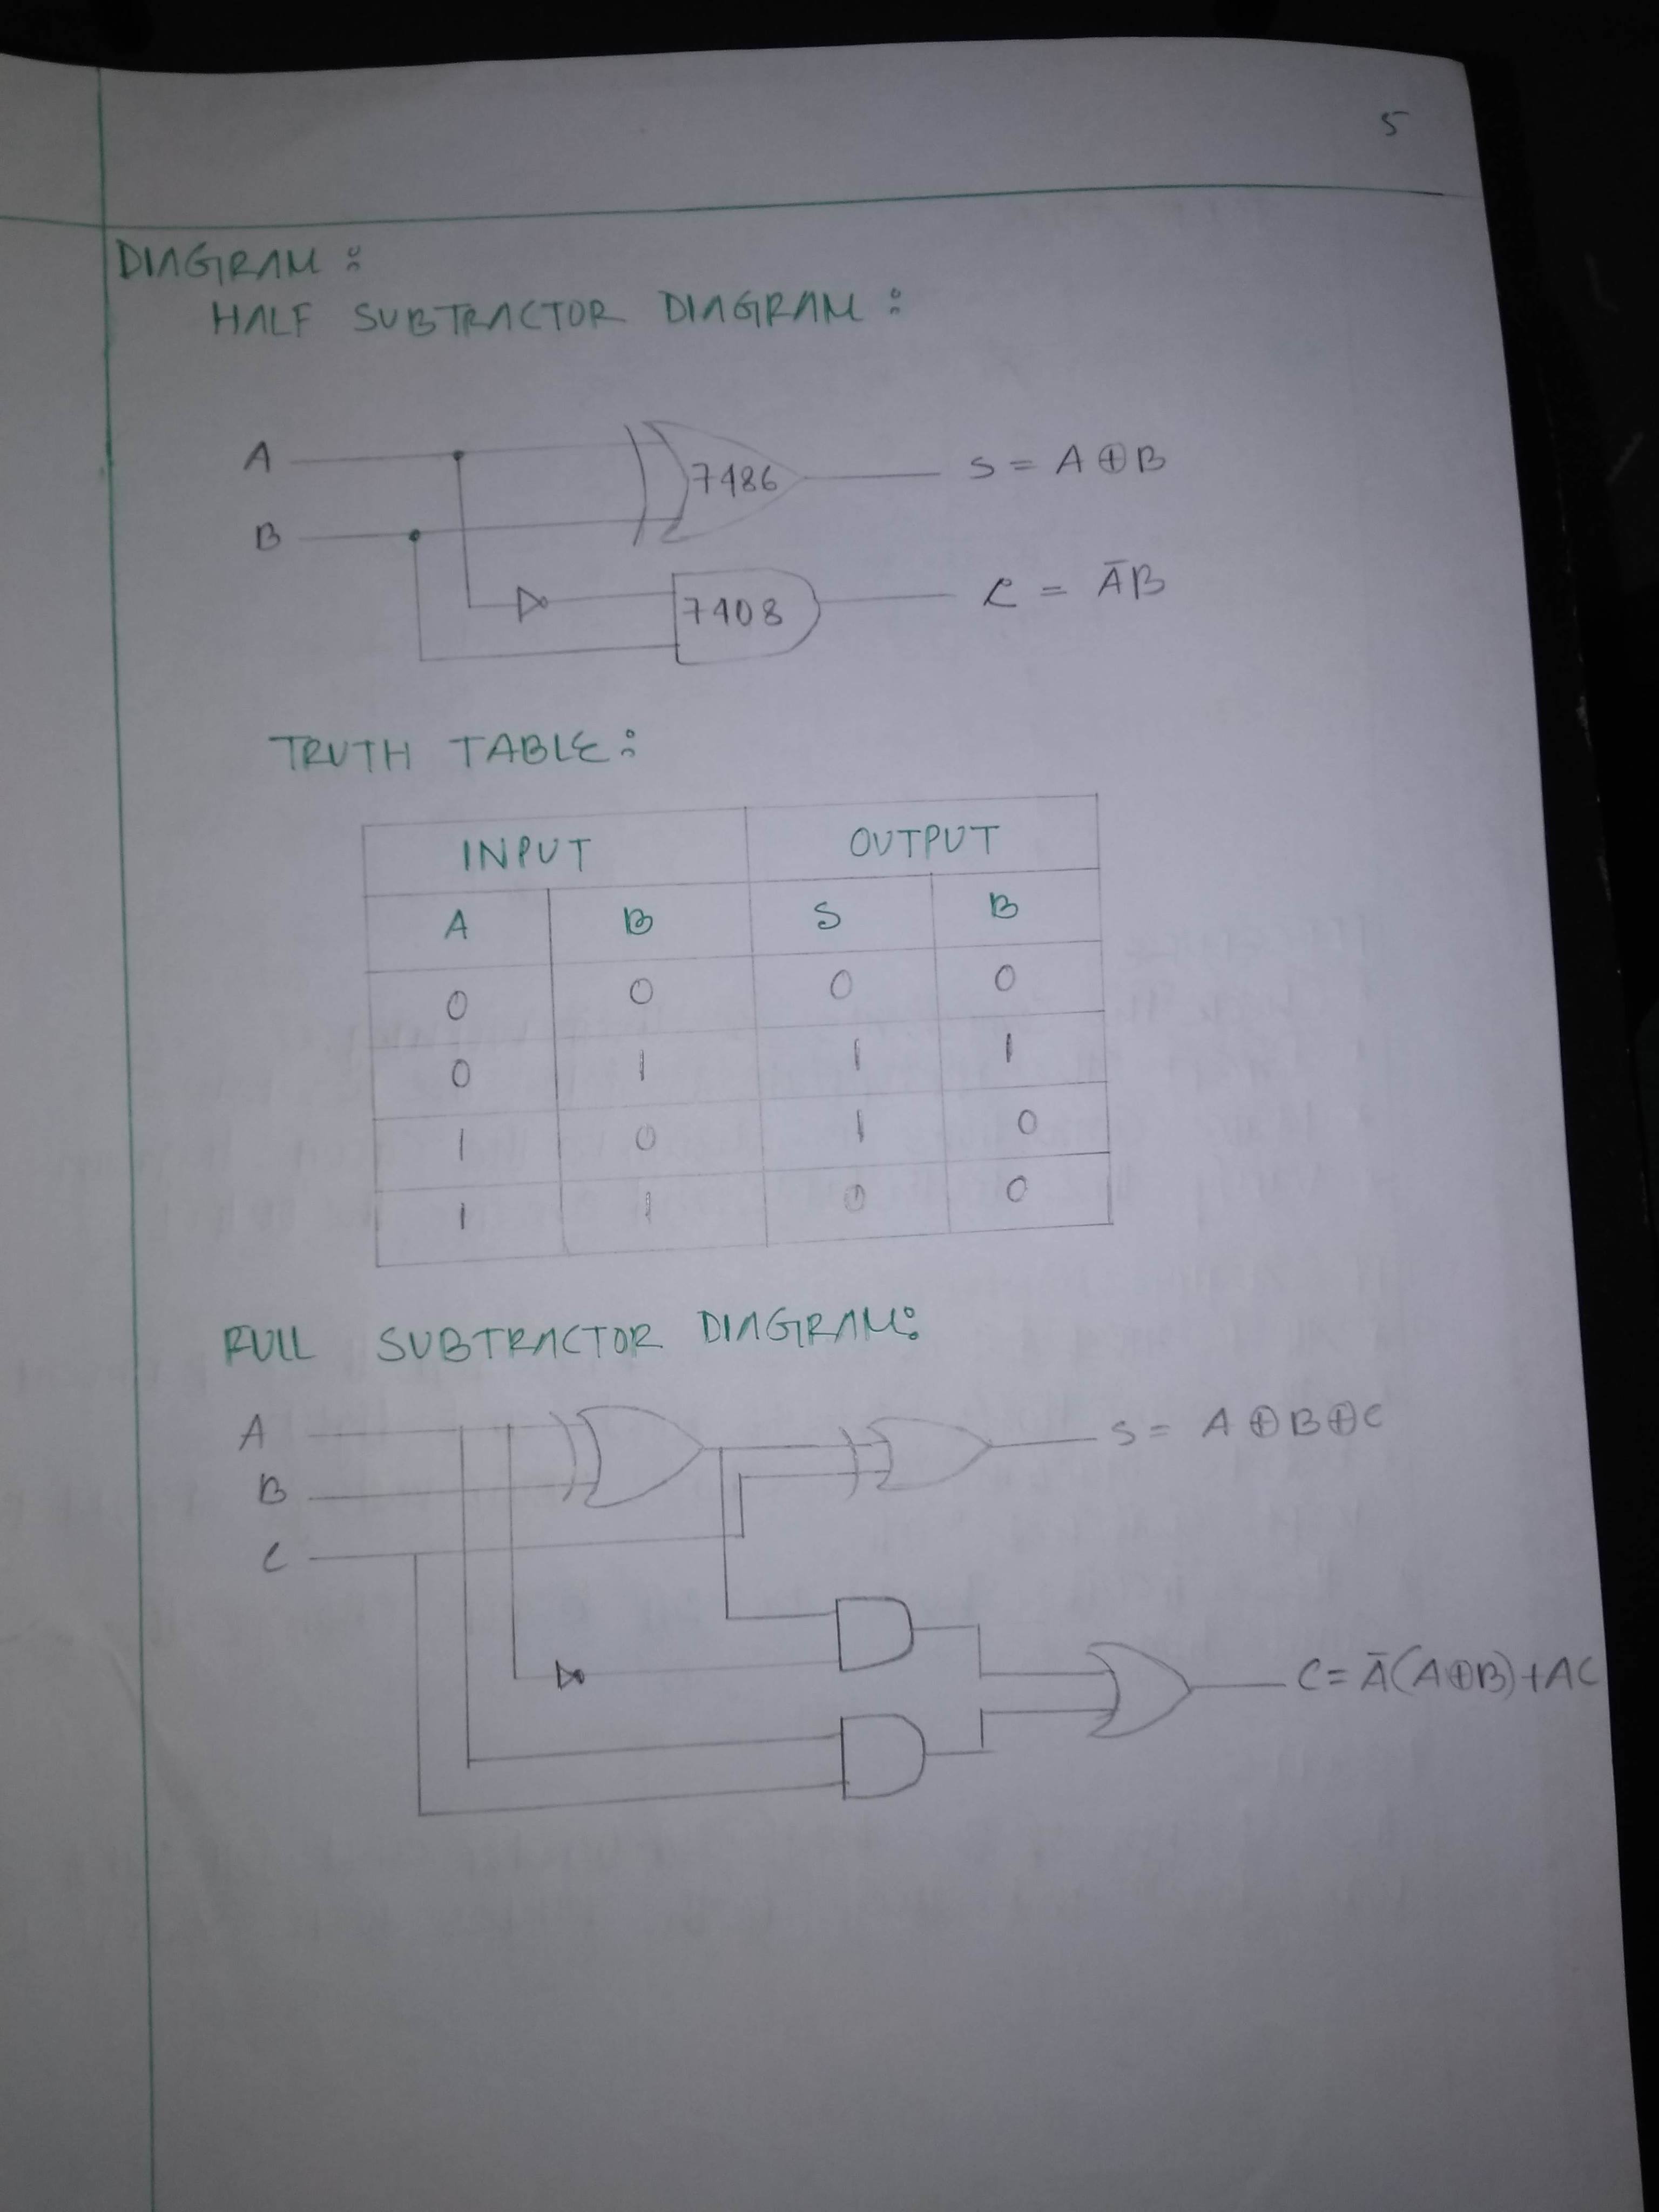 5
DIAGRAM:
HALF SUBTRACTOR DIAGRAM:
A
7486
S = A⊕B
B
7408
C = A̅B
TRUTH TABLE:
INPUT OUTPUT
A B S B
0 0 0 0
0 1 1 1
1 0 1 0
1 1 0 0
FULL SUBTRACTOR DIAGRAM:
A
S = A⊕B⊕C
B
C
C = A̅(A⊕B)+AC